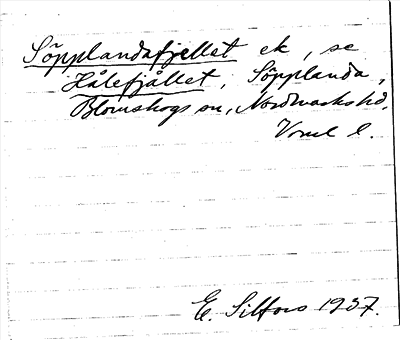 Söpplandafjellet ek, se
Hålefjället, Söpplanda,
Blomskogs sn, Nordmarks hd,
Vrml l.
E. Silfors 1937.